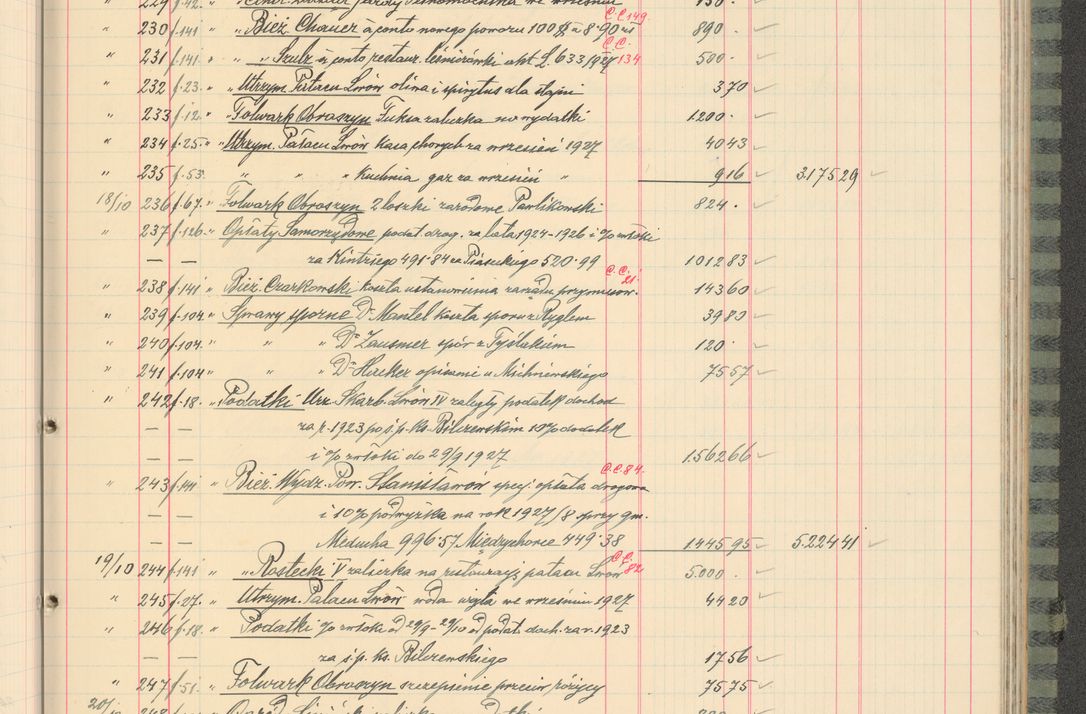 " 230 f.141 " Bież. Chauer à conto nowego powozu 100 $ à 8·90 zł C.C.149. 890 ·
" 231 f.141. " " " Szulz à conto restaur. leśniczówki akt L. 633/927 C.C. 134 500 ·
" 232 f.23. " Utrzym. Pałacu Lwów oliwa i spirytus dla stajni 3 70
" 233 f.12. " Folwark Obroszyn Fuksa zaliczka na wydatki 1.200 ·
" 234 f.25. " Utrzym. Pałacu Lwów Kasa chorych za wrzesień 1927 40 43
" 235 f.53. " " " Kuchnia gaz za wrzesień " 9 16 3.175 29
18/10 236 f.67. " Folwark Obroszyn 2 loszki zarodowe Pawlikowski 824 ·
" 237 f.126. " Opłaty Samorządowe podat. drog. za lata 1924-1926 i % zwłoki
— — za Kintziego 491·84 za Piaseckiego 520·99 1.012 83
" 238 f.141 " Bież. Czarkowski koszta ustanowienia zarządu przymusow. C.C. 21. 143 60
" 239 f.104. " Sprawy sporne Dr Mantel koszta sporu z Ryglem 39 80
" 240 f.104. " " " Dr Zausmer spór z 120 ·
" 241 f.104 " " " Dr Hacker opisami u 75 57
" 242 f.18. " Podatki Urz. Skarb. Lwów IV zaległy podatek dochod
— — za r. 1923 po ś.p. ks. Bilczewskim 10% dodatek
— — i % zwłoki do 29/9 1927 1.562 66
" 243 f.141 " Bież. Wydz. Pow. Stanisławów specj. opłata drogowa C.C.84.
— — i 10% podwyżka na rok 1927/8 przy gm.
— — Meducha 996·57 Międzyhorce 449·38 1.445 95 5.224 41
19/10 244 f.141 " " Rostecki V zaliczka na restaurację pałacu Lwów C.C. 82 5.000 ·
" 245 f.27. " Utrzym. Pałacu Lwów woda wzięta we wrześniu 1927 44 20
" 246 f.18. " Podatki % zwłoki od 29/9 - 29/10 od podat. doch. za r. 1923
— — za ś.p. ks. Bilczewskiego 17 56
" 247 f.51. " Folwark Obroszyn szczepienie przeciw różycy 75 75
20/10